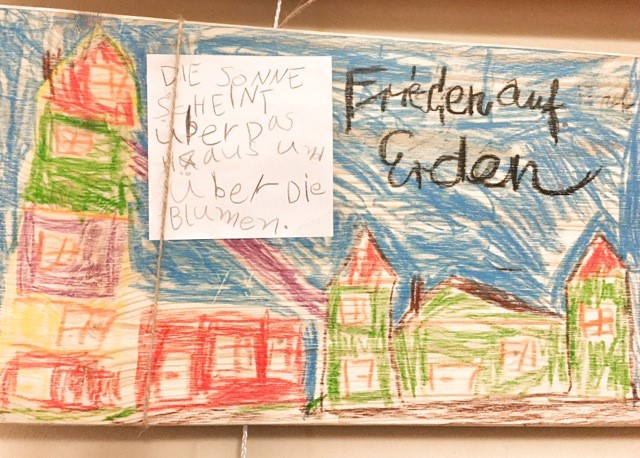 DIE SONNE
SCHEINT
über Das
Haus und
über Die
Blumen.
Frieden auf
Erden